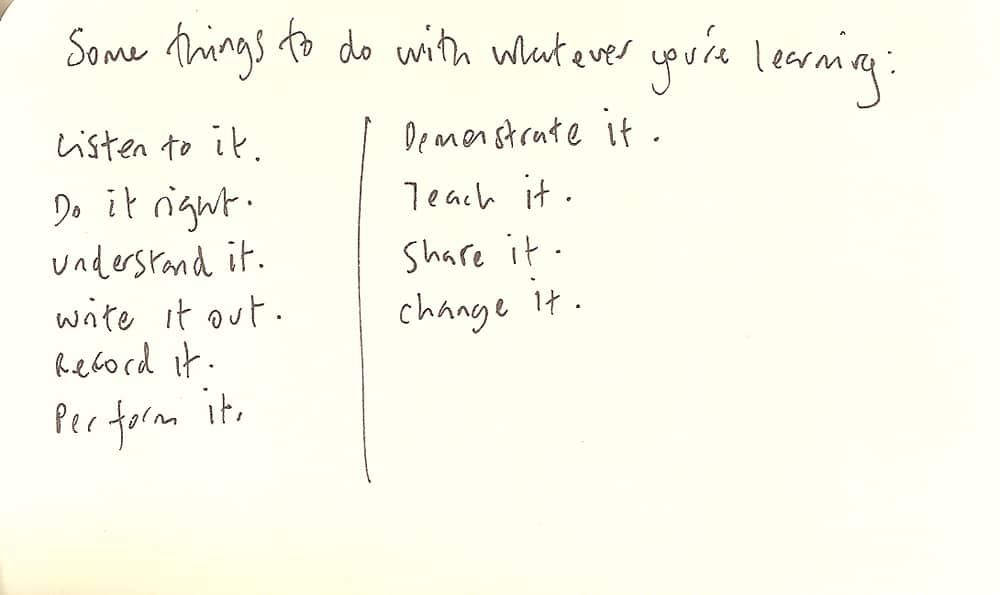 Some things to do with whatever you're learning:
Listen to it.
Do it right.
understand it.
write it out.
Record it.
Perform it.
Demonstrate it.
Teach it.
Share it.
change it.